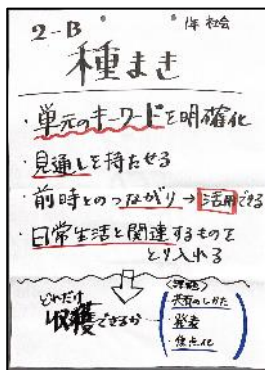 2-B 1年 社会
種まき
・単元のキーワードを明確化
・見通しを持たせる
・前時とのつながり→活用できる
・日常生活と関連するものを
とり入れる
どれだけ
収穫できるか
<課題>
・共有のしかた
・発表
・焦点化